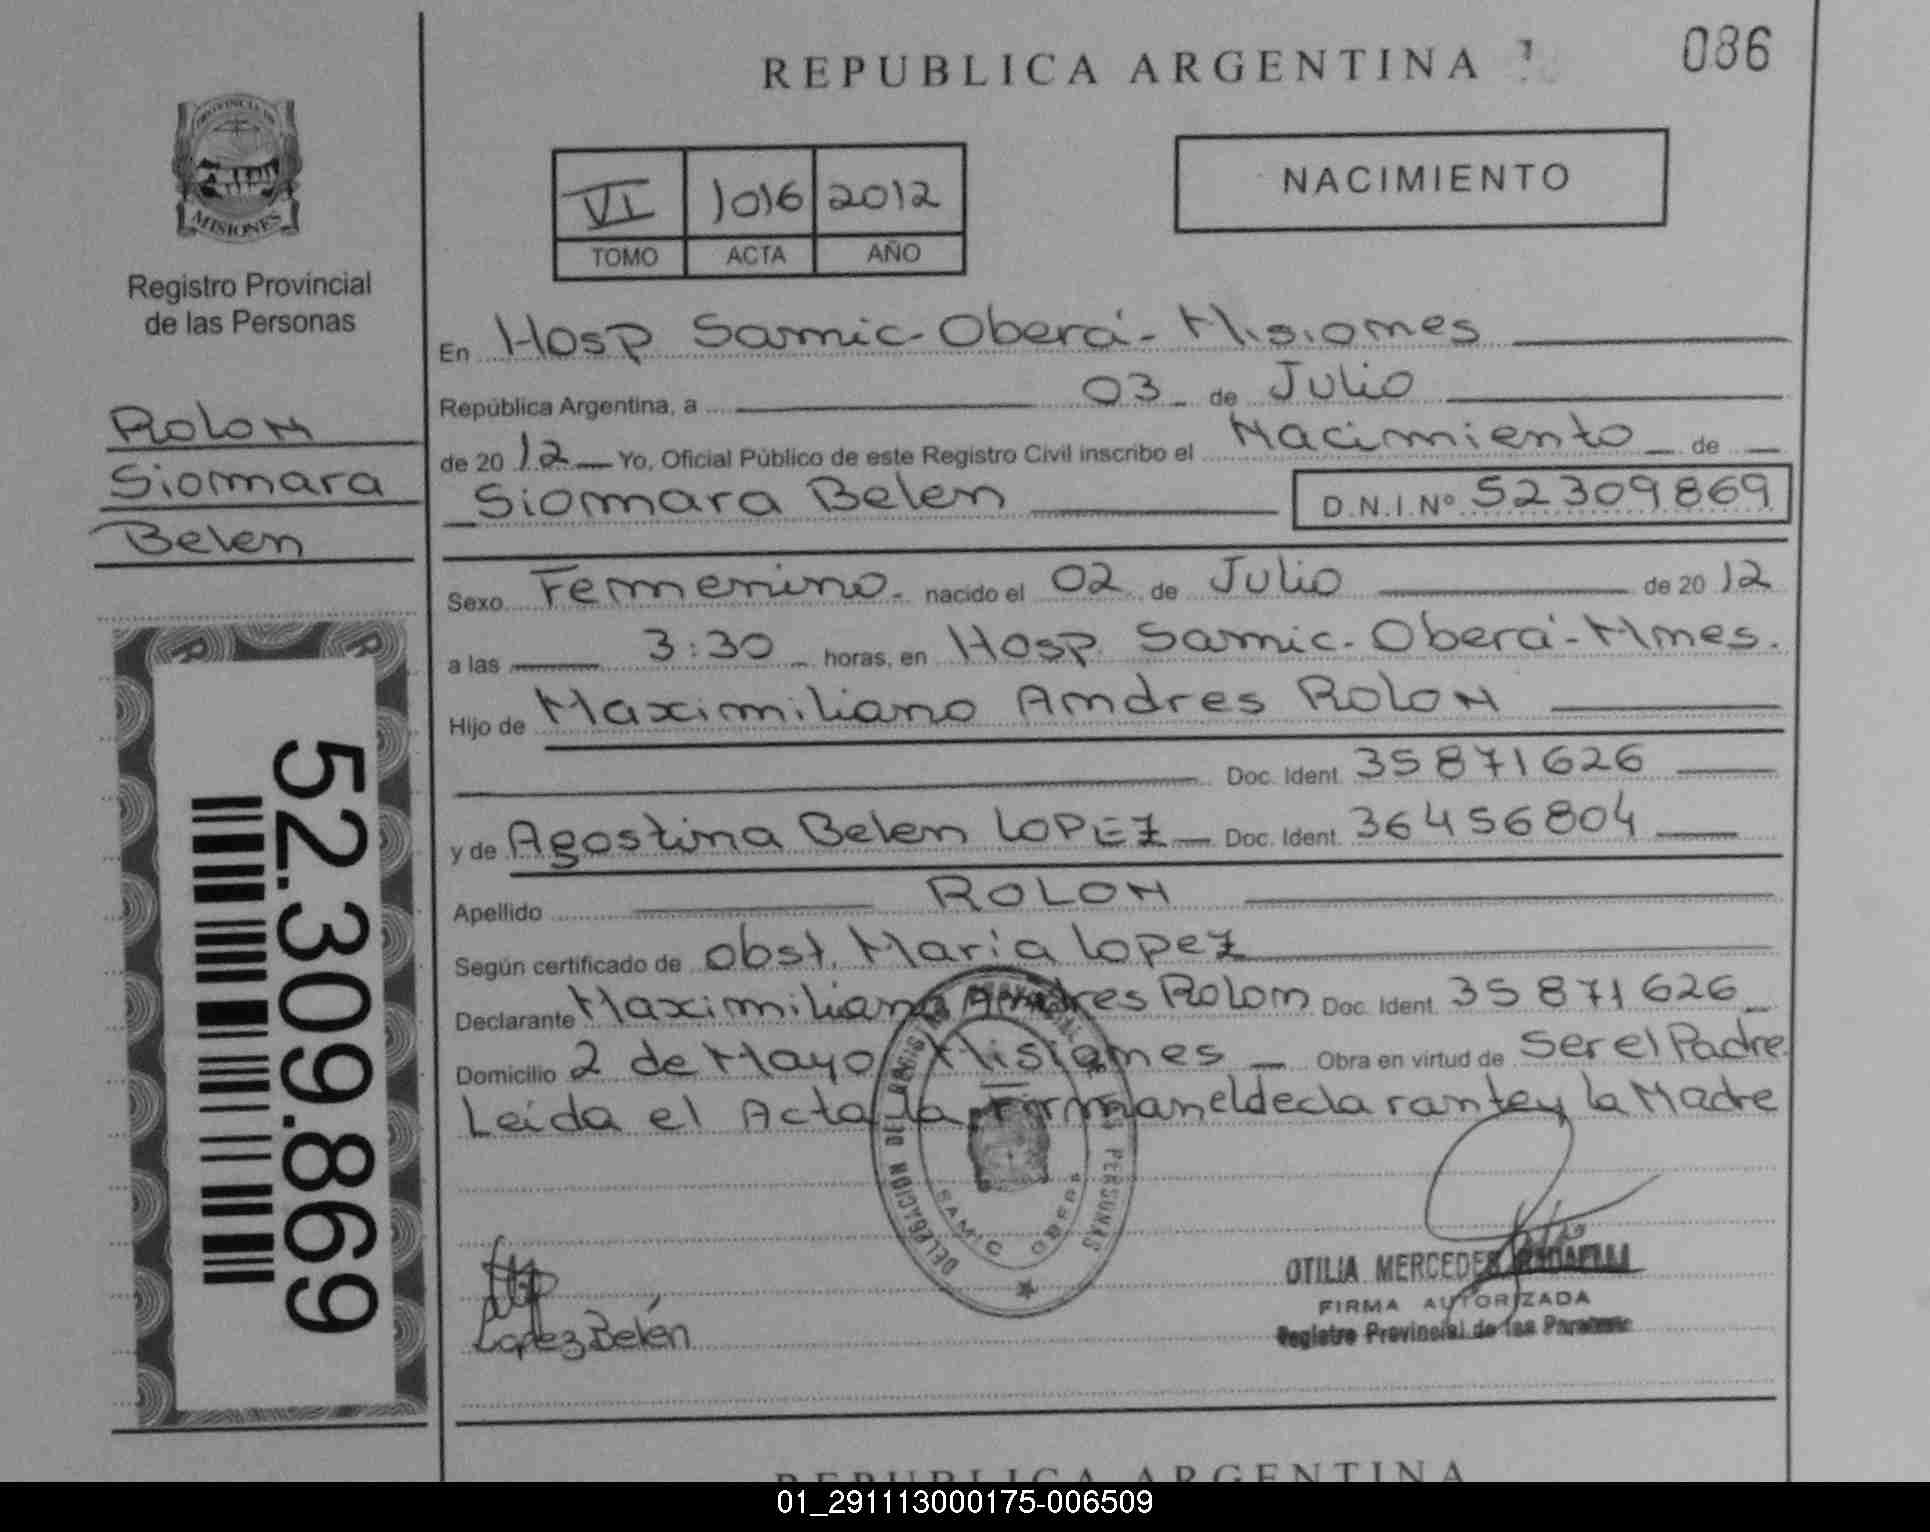 REPUBLICA ARGENTINA
086
PROVINCIA DE
MISIONES
Registro Provincial
de las Personas
Rolon
Siomara
Belen
52.309.869
VI 1016 2012
TOMO ACTA AÑO
NACIMIENTO
En Hosp Samic-Oberá-Misiones
República Argentina, a 03 de Julio
de 2012 Yo, Oficial Público de este Registro Civil inscribo el Nacimiento de
Siomara Belen D.N.I.Nº 52309869
Sexo Femenino. nacido el 02 de Julio de 2012
a las 3:30 horas, en Hosp. Samic-Oberá-Mnes.
Hijo de Maximiliano Andres Rolon
Doc. Ident. 35871626
y de Agostina Belen LOPEZ Doc. Ident. 36456804
Apellido ROLON
Según certificado de obst. Maria Lopez
Declarante Maximiliano Andres Rolon Doc. Ident. 35871626
Domicilio 2 de Mayo Misiones Obra en virtud de Ser el Padre
Leida el Acta la firman el declarante y la Madre
DELEGACION DEL REGISTRO PROVINCIAL DE LAS PERSONAS
SAMIC OBERA
Lopez Belén
OTILIA MERCEDES
FIRMA AUTORIZADA
Registro Provincial de las Personas
REPUBLICA ARGENTINA
01_291113000175-006509